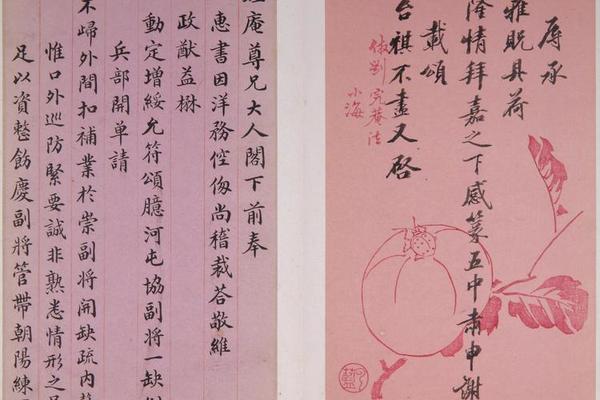 辱承
雅貺具荷
隆情拜嘉之下感篆五中肅申謝
載頌
台祺不盡又啓
倣劉完菴法
小海
庵尊兄大人閣下前奉
惠書因洋務倥傯尚稽裁荅敬維
政猷益楙
動定增綏允符頌臆河屯協副將一缺
兵部開單請
歸外間扣補業於崇副將開缺疏內
惟口外巡防緊要誠非熟悉情形之
足以資整飭慶副將管帶朝陽練